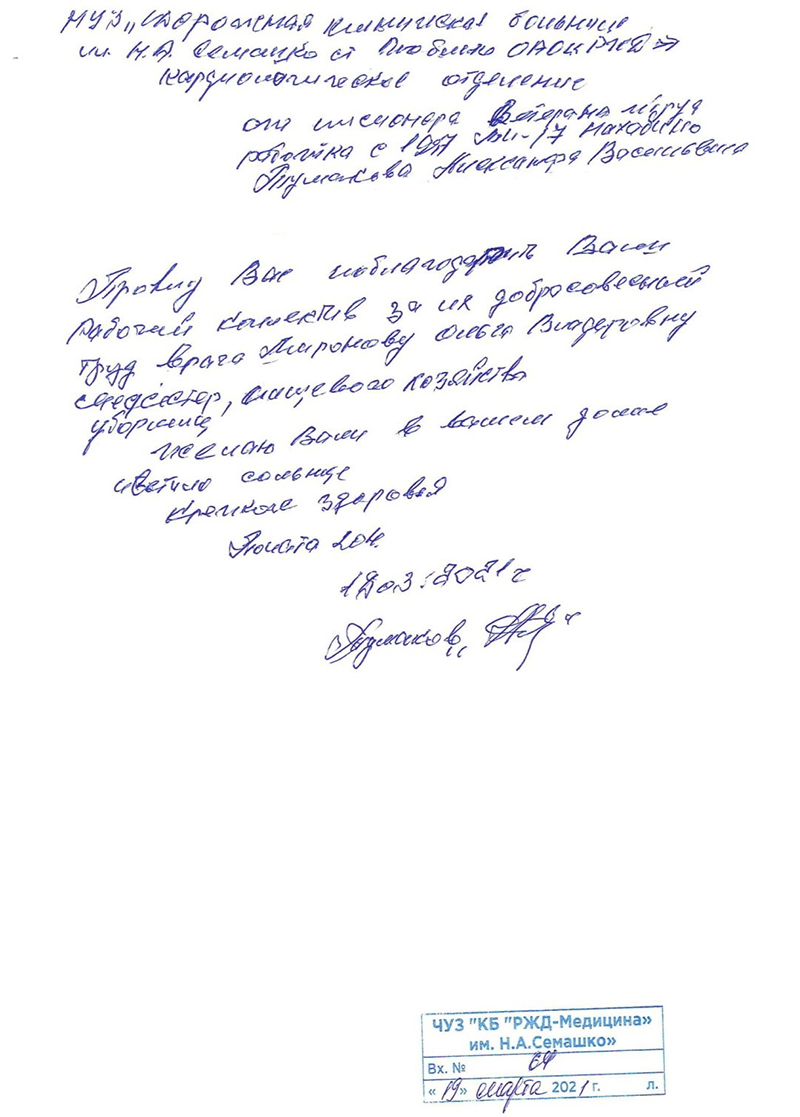 НУЗ „Дорожная клиническая больница
им. Н.А. Семашко ст Люблино ОАО «РЖД»
кардиологическое отделение
от пенсионера Ветерана труда
работика с Нахабино
Тумакова Александра Васильевича
Провшу Вас поблагодарить Ваш
Рабочий колектив за их добросовесный
труд врача Миронову Ольга
медсестер, пищевого хозяйства
уборщиц
Желаю Вам в вашем доме
светило солнце
крепкое здоровья
2021 г
Тумаков
ЧУЗ "КБ "РЖД-Медицина»
им. Н.А.Семашко»
Вх. №
«19» марта 2021 г. л.